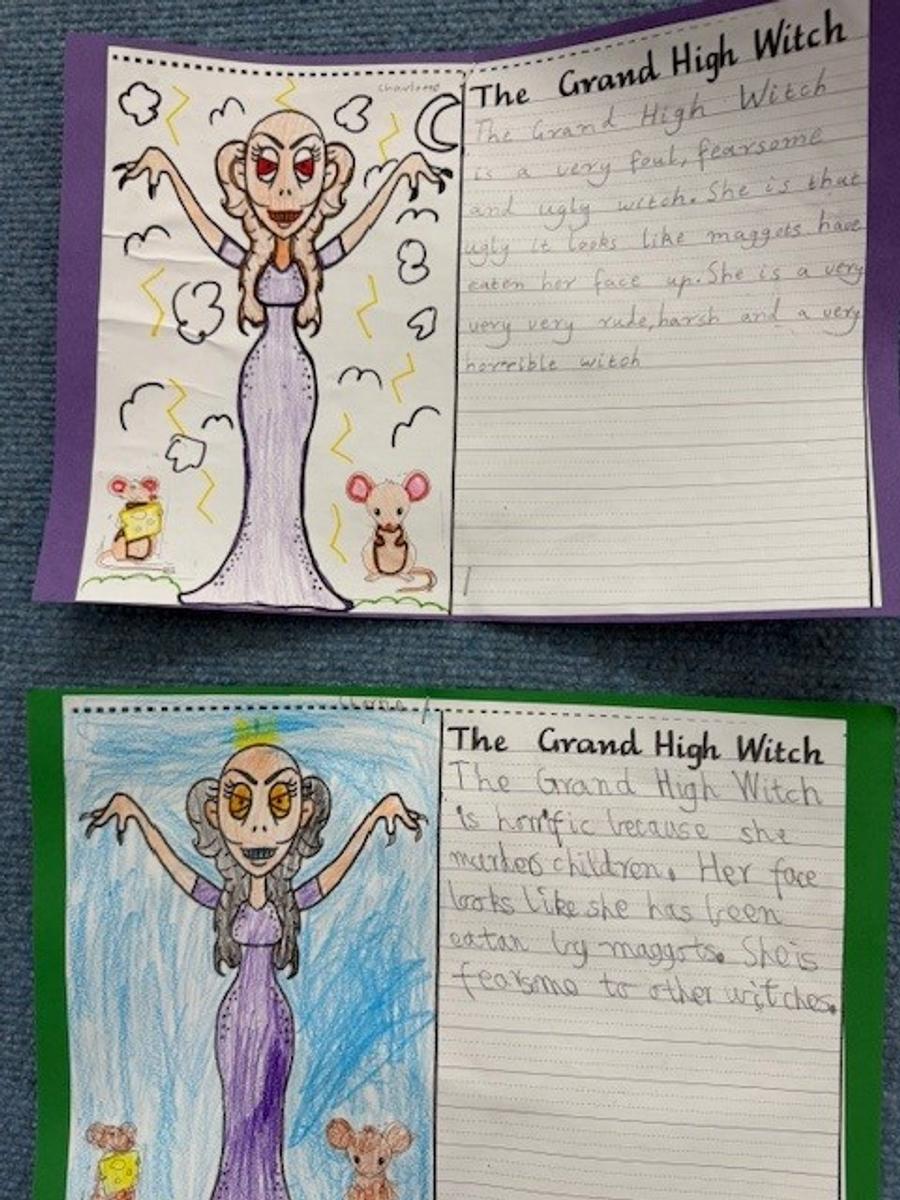 The Grand High Witch
The Grand High Witch
is a very foul, fearsome
and ugly witch. She is that
ugly it looks like maggots have
eaten her face up. She is a very
very very rude, harsh and a very
horrible witch
The Grand High Witch
The Grand High Witch
is horrific because she
murders children. Her face
looks like she has been
eatan by maggots. She is
fearsome to other witches.